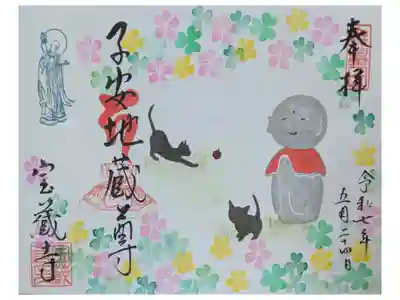 奉拝
令和七年
五月二十四日
子安地蔵尊
宝蔵寺